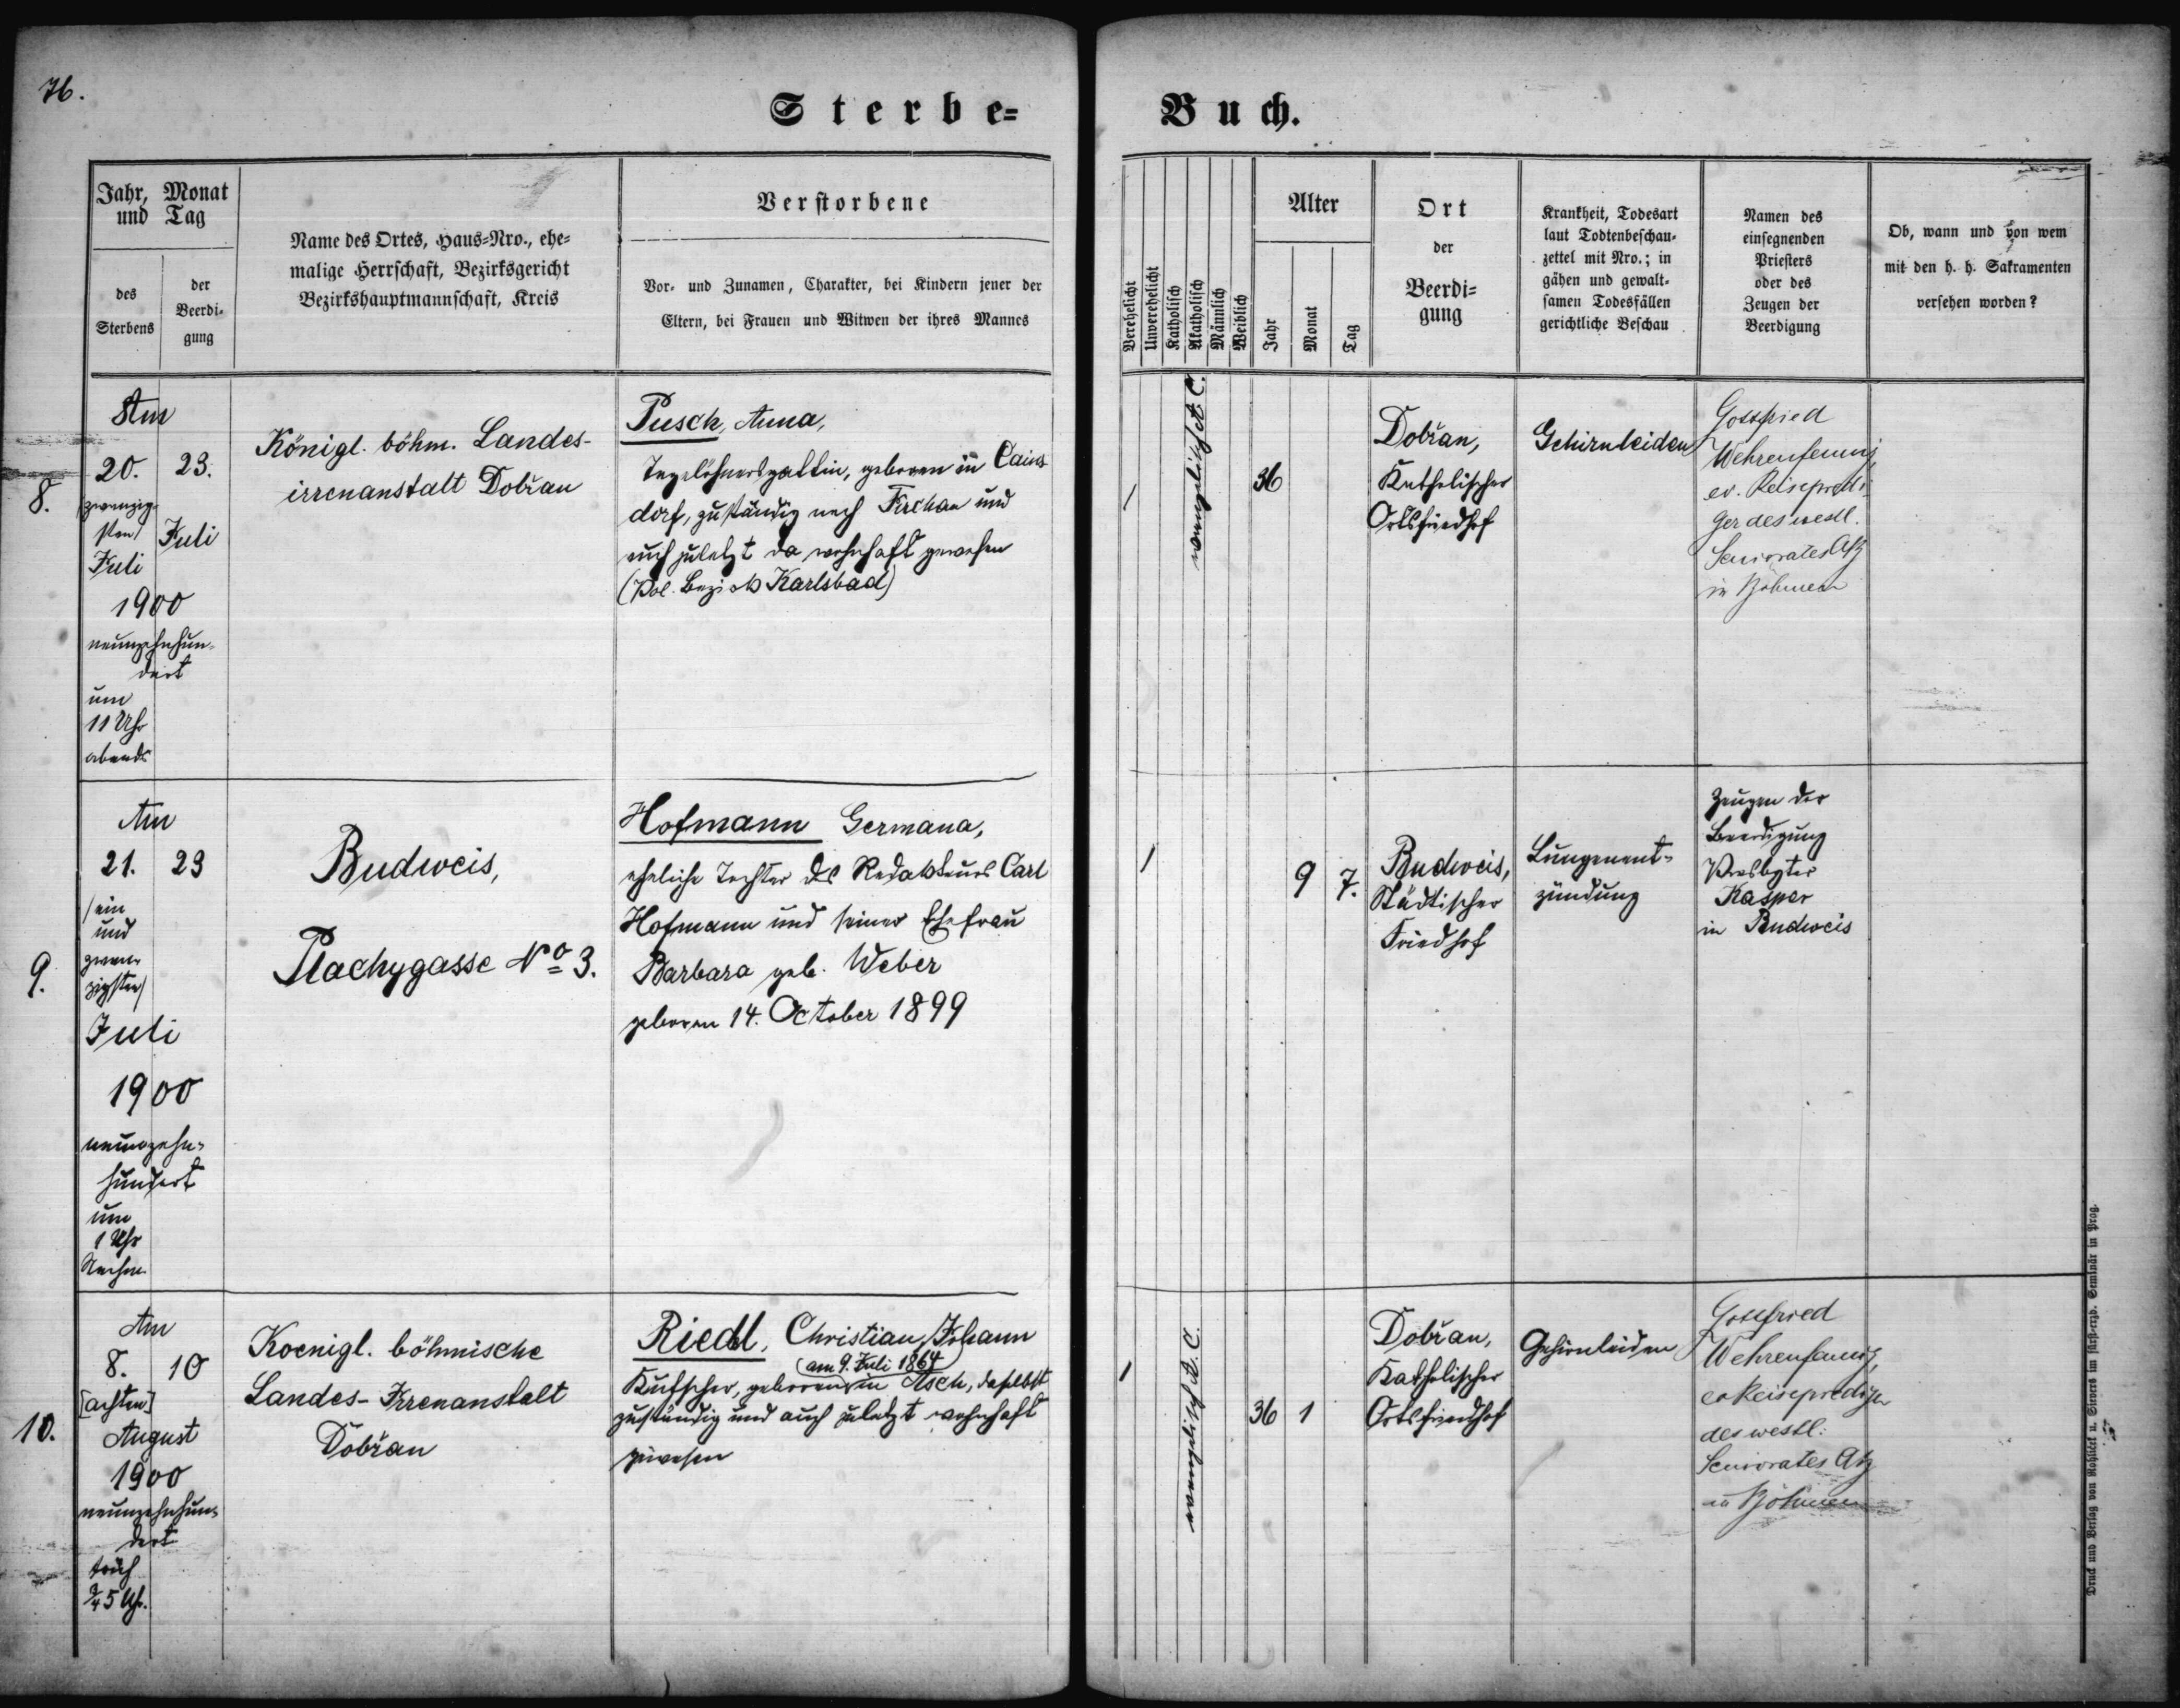 76.
Sterbe=
Buch.
Jahr, Monat
und Tag
des
Sterbens
der
Beerdi-
gung
Name des Ortes, Haus-Nro., ehe-
malige Herrschaft, Bezirksgericht
Bezirkshauptmannschaft, Kreis
Verstorbene
Vor- und Zunamen, Charakter, bei Kindern jener der
Eltern, bei Frauen und Witwen der ihres Mannes
Verehelicht
Unverehelicht
Katholisch
Akatholisch
Männlich
Weiblich
Alter
Jahr
Monat
Tag
Ort
der
Beerdi=
gung
Krankheit, Todesart
laut Todtenbeschau-
zettel mit Nro.; in
gähen und gewalt-
samen Todesfällen
gerichtliche Beschau
Namen des
einsegnenden
Priesters
oder des
Zeugen der
Beerdigung
Ob, wann und von wem
mit den h. h. Sakramenten
versehen worden?
8.
Am
20. 23.
zwanzig-
sten Juli
Juli
1900
neunzehnhun-
dert
um
11 Uhr
abends
Königl. böhm. Landes-
irrenanstalt Dobřan
Pusch, Anna,
Tagelöhnersgattin, geboren in Cains
dorf, zuständig nach und
auch zuletzt da wohnhaft gewesen
(Pol. Bezirk Karlsbad)
1
evangelisch A. C.
36
Dobřan,
Katholischer
Ortsfriedhof
Gehirnleiden
Gottfried
Wehrenfennig,
ev. Reisepredi-
ger des westl.
Seniorates AB
in Böhmen
9.
Am
21. 23
/ein
und
zwan-
zigsten/
Juli
1900
neunzehn-
hundert
um
1 Uhr
Nachm.
Budweis,
Plachygasse No 3.
Hofmann Germana,
eheliche Tochter des Redakteurs Carl
Hofmann und seiner Ehefrau
Barbara geb. Weber
geboren 14. October 1899
1
9 7.
Budweis,
Städtischer
Friedhof
Lungenent-
zündung
Zeugen der
Beerdigung
Presbyter
Kaspar
in Budweis
10.
Am
8. 10
[achten]
August
1900
neunzehnhun-
dert
früh
3/4 5 Uhr.
Koenigl. böhmische
Landes-Irrenanstalt
Dobřan
Riedl, Christian Johann
(am 9. Juli 1864)
Kutscher, geboren in Asch, daselbst
zuständig und auch zuletzt wohnhaft
gewesen
1
evangelisch A. C.
36 1
Dobřan,
Katholischer
Ortsfriedhof
Gehirnleiden
Gottfried
Wehrenfennig,
ev Reiseprediger
des westl.
Seniorates AB
in Böhmen
Druck und Verlag von Rohlíček u. Sievers im fürst-erzb. Seminär in Prag.